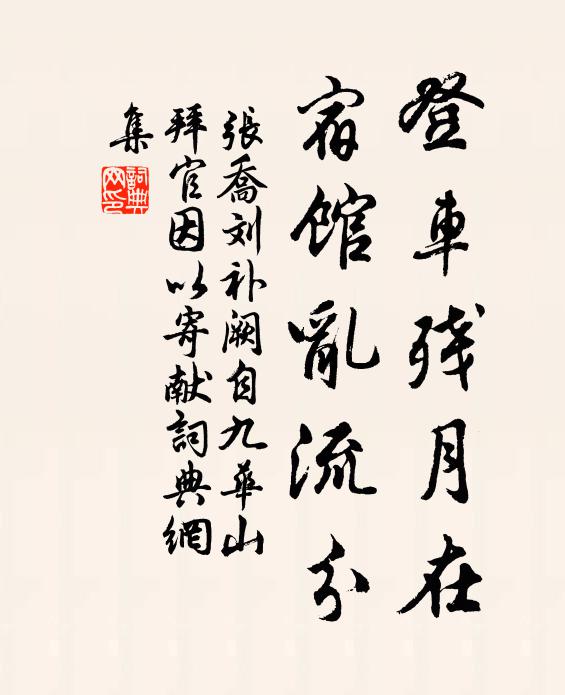 登車残月在
宿馆亂流分
張喬刘补阙自九華山
拜官因以寄献詞典網
集
詞典网印